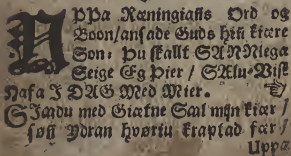 UPpa Ræningians Ord og
Boon/ansade Guds hiñ kiære
Son: Þu skallt SANNlega
Seige Eg Þier / SAlu-Vist
Hafa I DAG Med Mier.
SIadu med Giætne Saal mijn kiær /
soñ Ydran hvøriu kraptad fær /
Uppa